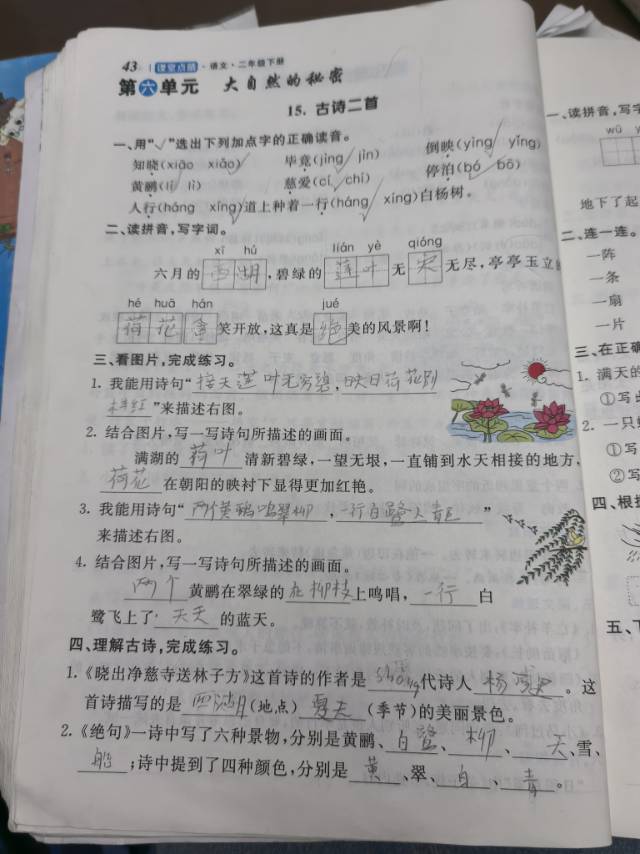 43 课堂点睛·语文·二年级下册
第六单元 大自然的秘密
15. 古诗二首
一、用“√”选出下列加点字的正确读音。
知晓(xiāo xiǎo) 毕竟(jìng jìn) 倒映(yìng yǐng)
黄鹂(lí lì) 慈爱(cí chí) 停泊(bó bō)
人行(háng xíng)道上种着一行(háng xíng)白杨树。
二、读拼音,写字词。
xī hú lián yè qióng
六月的西湖,碧绿的莲叶无穷无尽,亭亭玉立
hé huā hán jué
荷花含笑开放,这真是绝美的风景啊!
三、看图片,完成练习。
1. 我能用诗句“接天莲叶无穷碧,映日荷花别
样红”来描述右图。
2. 结合图片,写一写诗句所描述的画面。
满湖的荷叶清新碧绿,一望无垠,一直铺到水天相接的地方,
荷花在朝阳的映衬下显得更加红艳。
3. 我能用诗句“两个黄鹂鸣翠柳,一行白鹭上青天”
来描述右图。
4. 结合图片,写一写诗句所描述的画面。
两个黄鹂在翠绿的在柳枝上鸣唱,一行白
鹭飞上了天天的蓝天。
四、理解古诗,完成练习。
1.《晓出净慈寺送林子方》这首诗的作者是代诗人杨。这
首诗描写的是西湖(地点)夏天(季节)的美丽景色。
2.《绝句》一诗中写了六种景物,分别是黄鹂、白鹭、柳、天、雪、
船;诗中提到了四种颜色,分别是黄、翠、白、青。
一、读拼音,写字
wū
地下了起
二、连一连。
一阵
一条
一扇
一片
三、在正确
1. 满天的
①写出
2. 一只
①写
②写
四、根据
五、